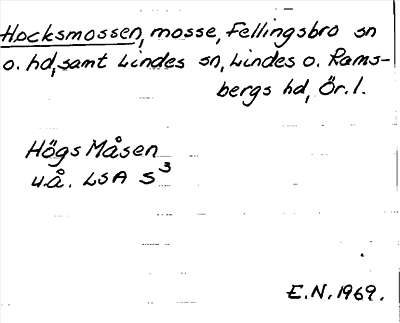 Hocksmossen, mosse, Fellingsbro sn
o. hd, samt Lindes sn, Lindes o. Rams-
bergs hd, Ör. l.
Högs Måsen
u.å. LSA S3
E.N. 1969.